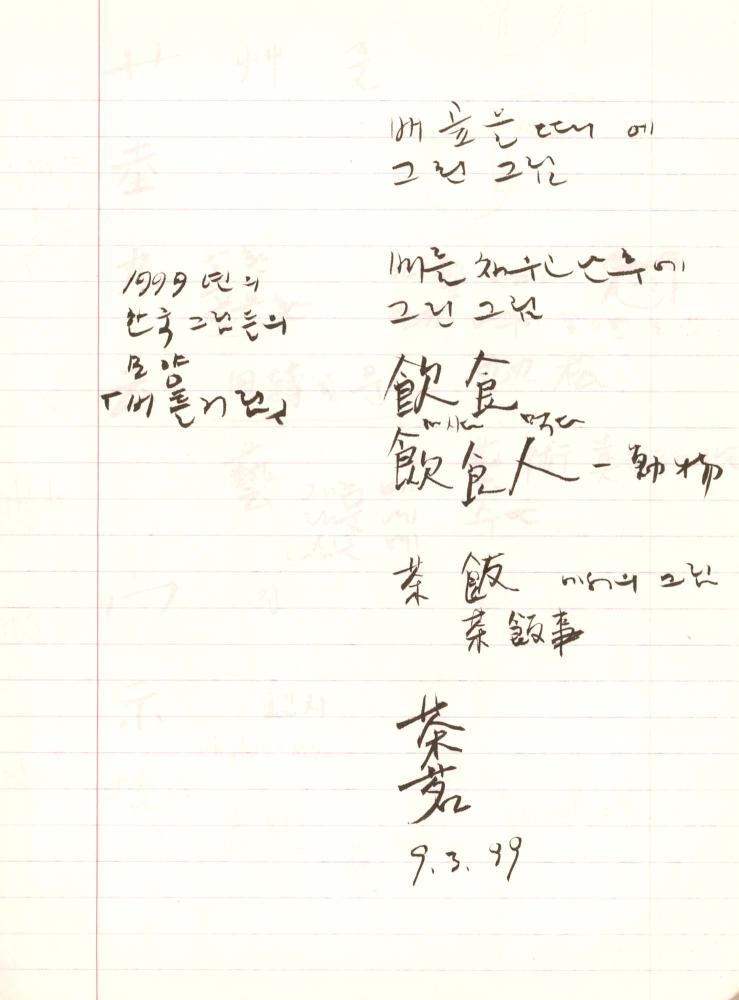 배고플 때에
그린 그림
배를 채우고 난 후에
그린 그림
1999년의
한국 그림들의
모양
飮食
마시다 먹다
飮食人 - 動物
茶 飯 미래의 그림
茶飯事
茶
茗
9.3.99